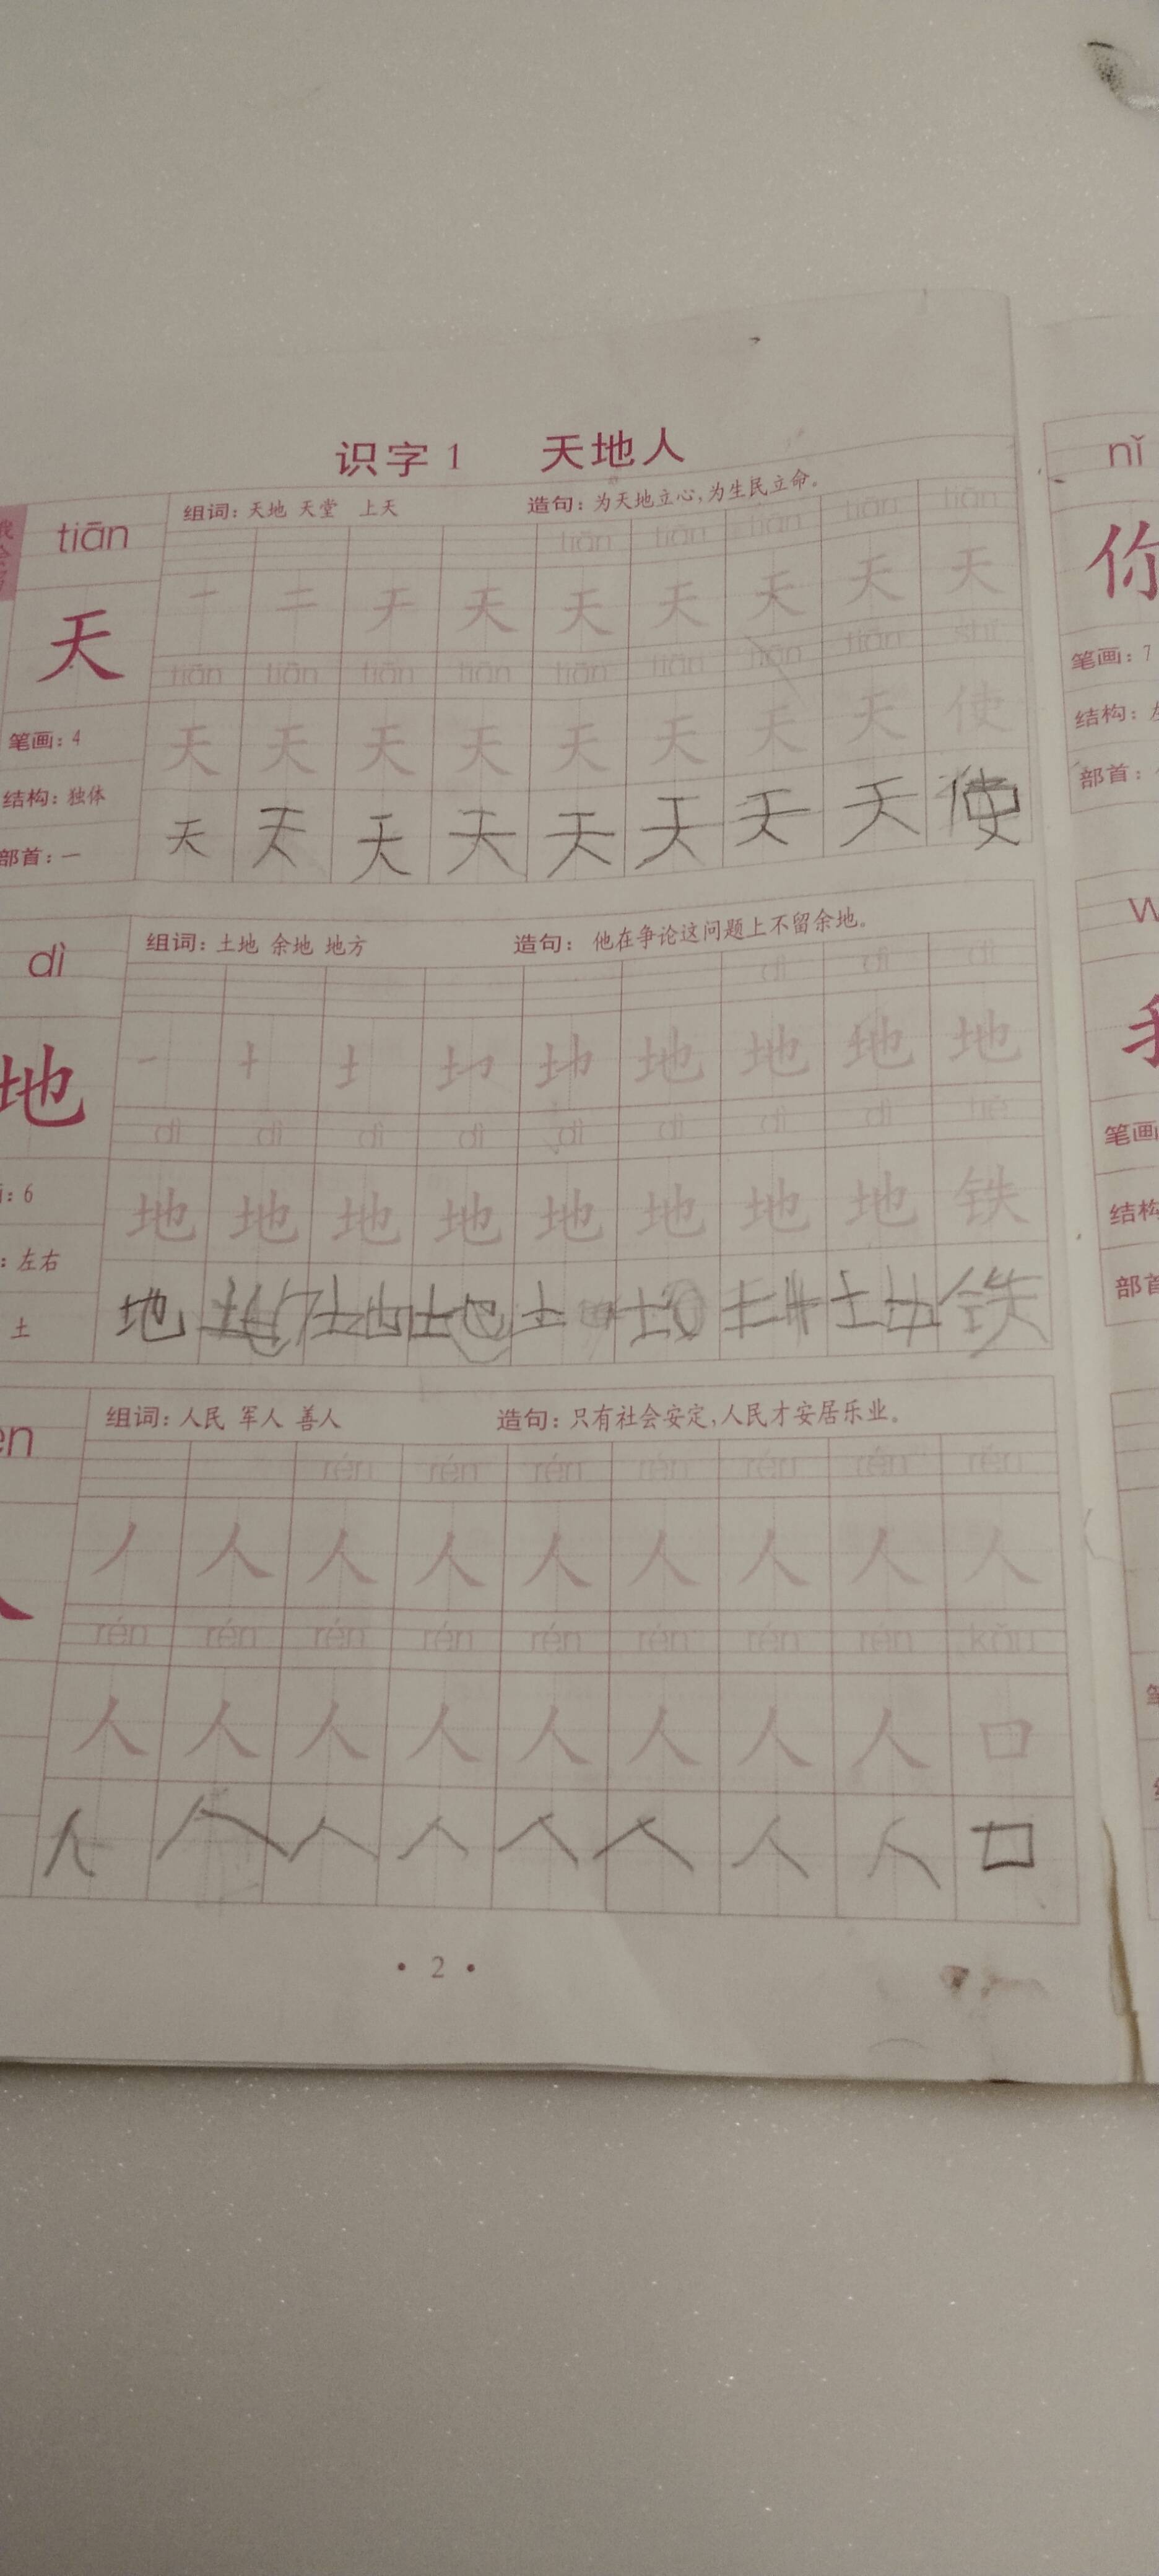 识字1 天地人
tiān 组词：天地 天堂 上天 造句：为天地立心，为生民立命。
tiān tiān tiān tiān tiān
天 一 二 天 天 天 天 天 天
tiān tiān tiān tiān tiān tiān tiān tiān shǐ
笔画：4 天 天 天 天 天 天 天 天 使
结构：独体
部首：一 天 天 天 天 天 天 天 天 使
dì 组词：土地 余地 地方 造句：他在争论这问题上不留余地。
dì dì dì
地 一 十 土 地 地 地 地
dì dì dì dì dì dì dì dì tiě
：6 地 地 地 地 地 地 地 地 铁
：左右
土 地 铁
en 组词：人民 军人 善人 造句：只有社会安定，人民才安居乐业。
rén rén rén rén rén rén rén
丿 人 人 人 人 人 人 人 人
rén rén rén rén rén rén rén rén kǒu
人 人 人 人 人 人 人 人 口
人 人 人 人 人 人 人 人 口
• 2 •
nǐ
你
笔画：7
结构：
部首：
笔画
结构
部首